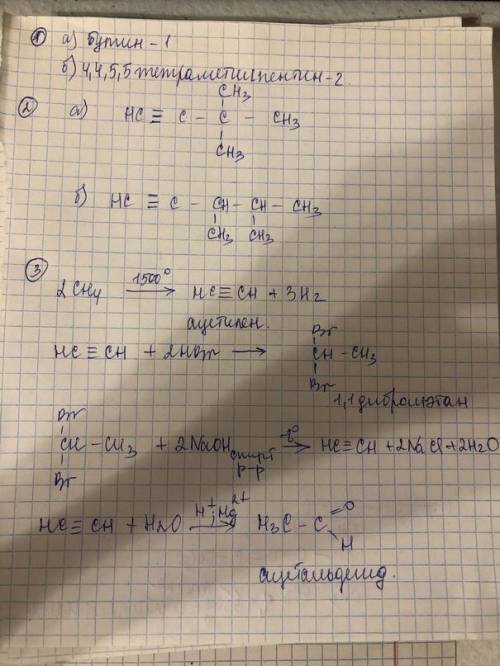 ① а) Бутин-1
б) 4,4,5,5 тетраметилпентин-2.
CH3
② а) HC ≡ C - C - CH3
CH3
б) HC ≡ C - CH - CH - CH3
CH3 CH3
③
2CH4 1500° → HC≡CH + 3H2
ацетилен.
Br
HC≡CH + 2HBr → CH - CH3
Br
1,1 дибромэтан
Br
CH - CH3 + 2NaOH спирт р-р t° → HC≡CH + 2NaCl + 2H2O
Br
HC≡CH + H2O H+; Hg2+ → H3C - C =O
H
ацетальдегид.